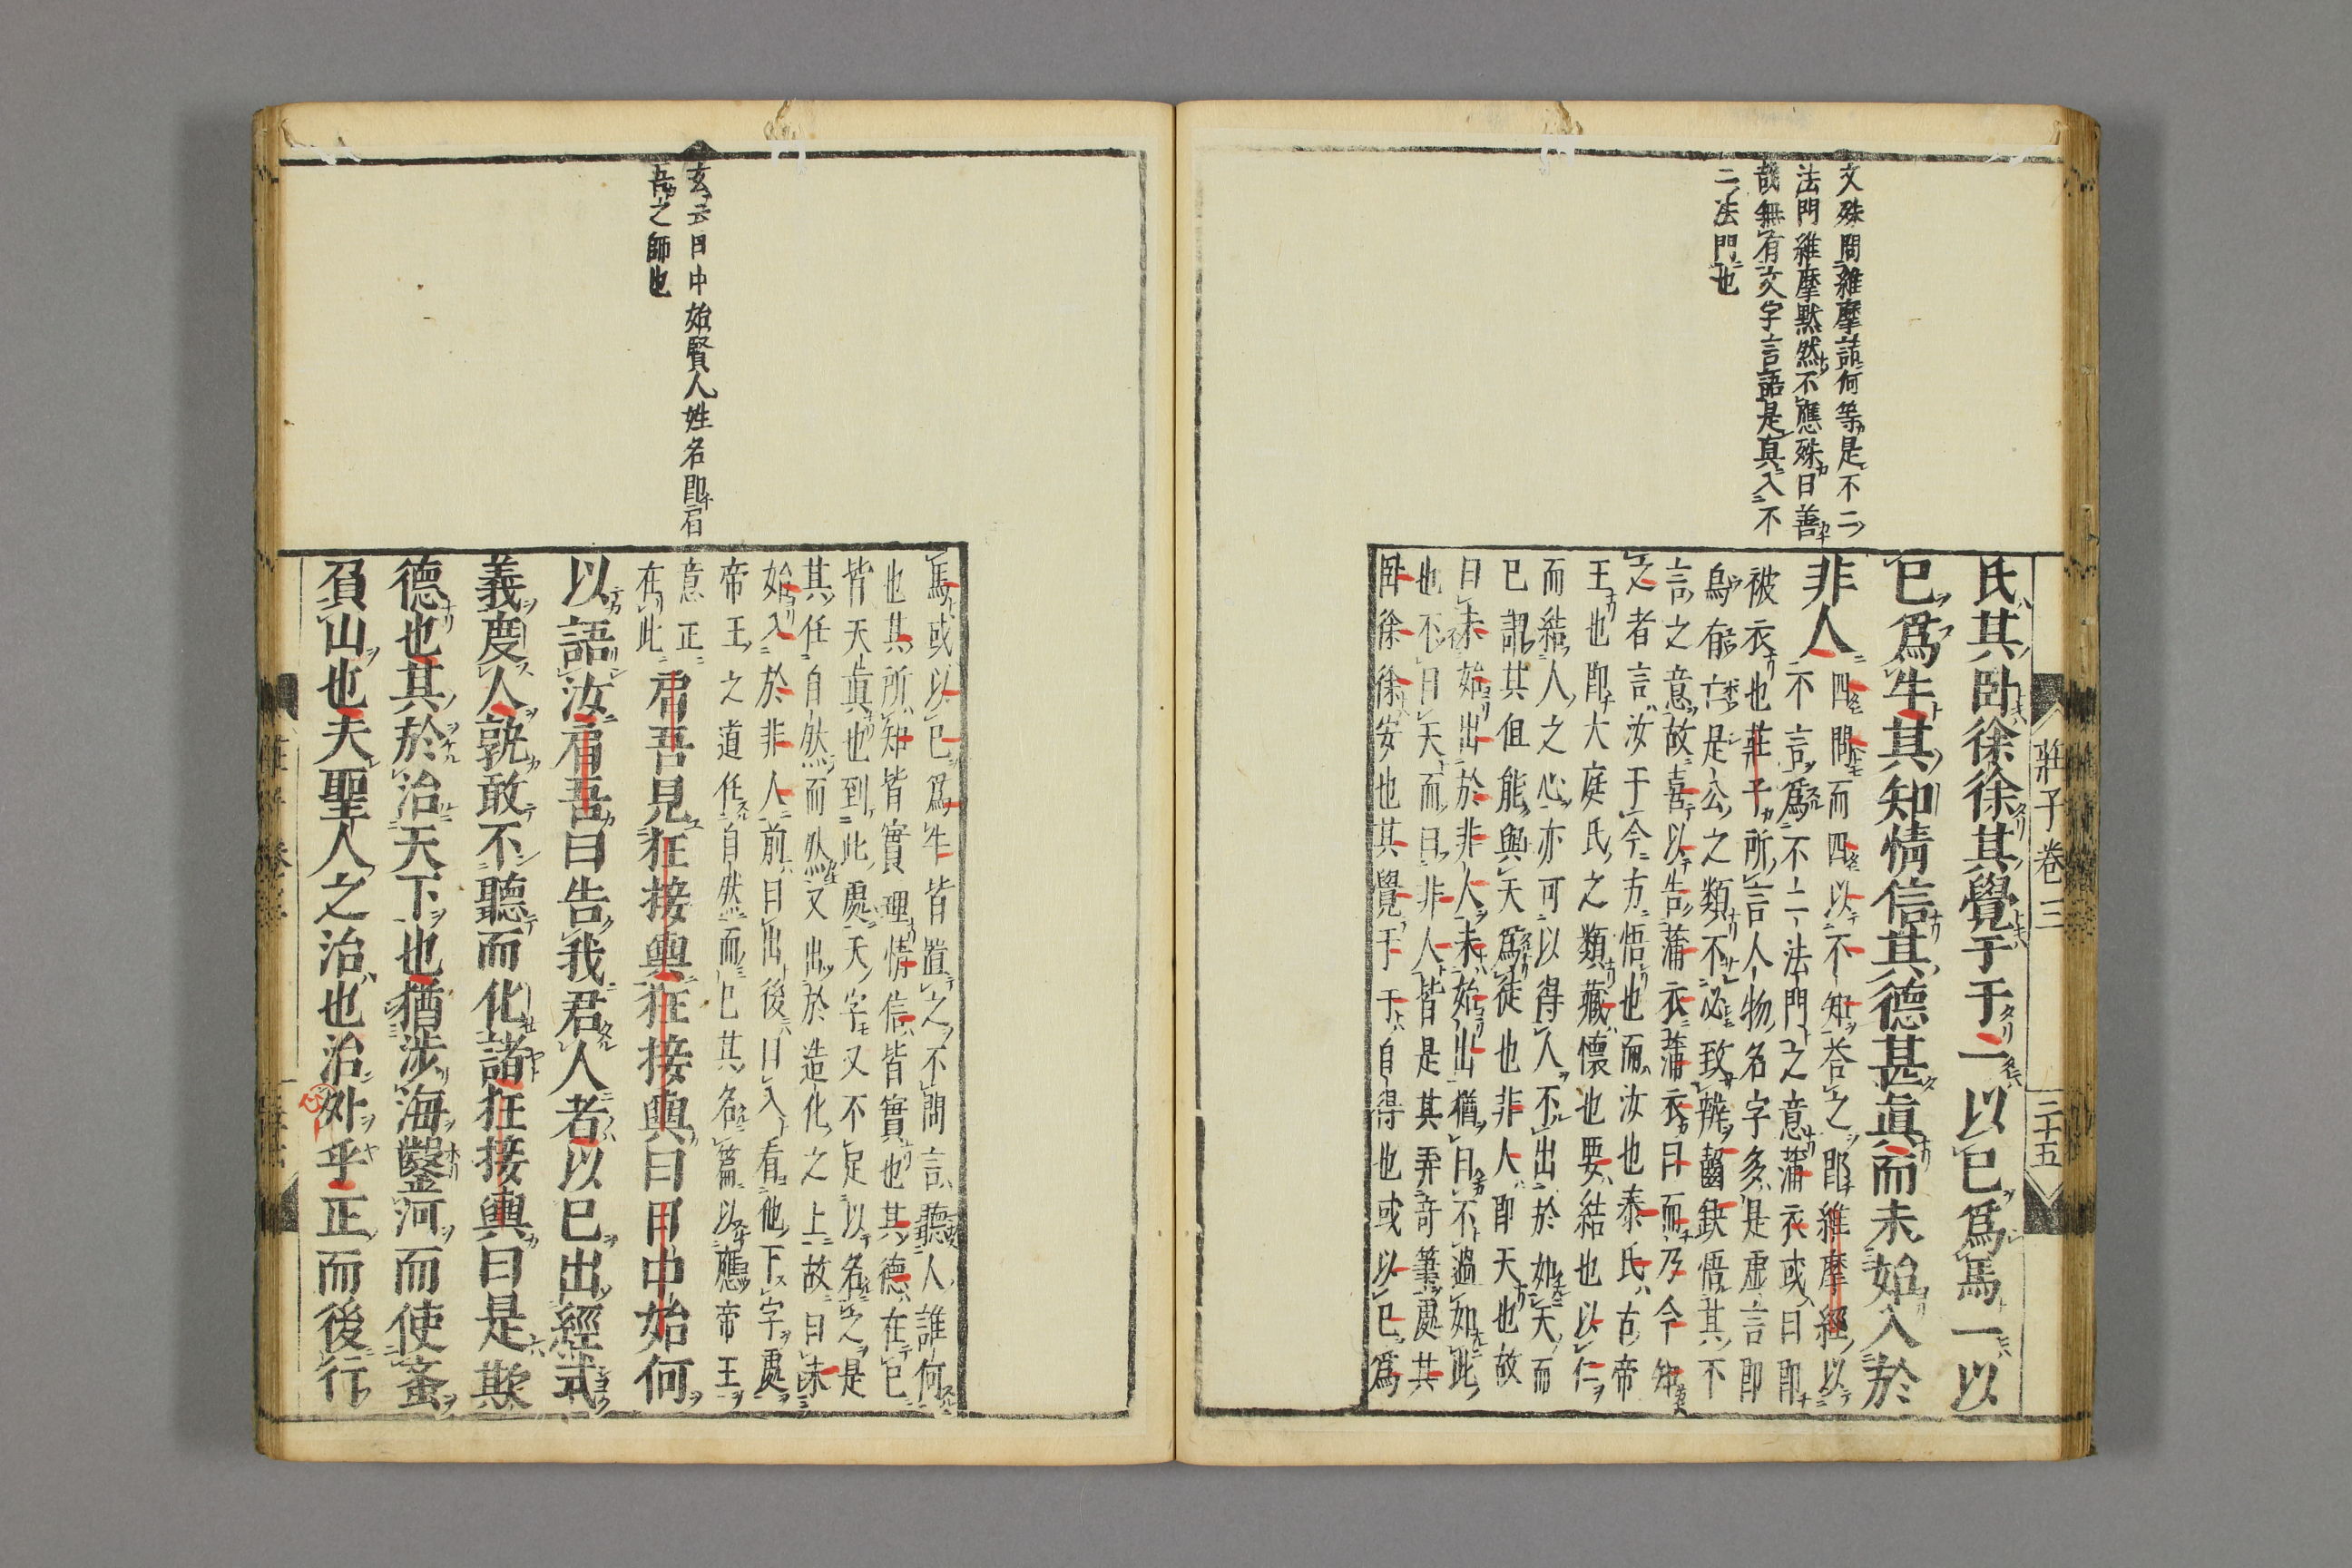 文殊問維摩詰何等是不二
法門維摩默然不應殊曰善
哉無有文字言語是真入不
二法門也
莊子卷三
三十五
氏其臥徐徐其覺于于一以已爲馬一以
已爲牛其知情信其德甚眞而未始入於
非人
四問而四以不知答之即維摩經以
不言爲不二法門之意蒲衣或曰即
被衣也莊子所言人物名字多是虛言即
烏有亡是公之類不必致辨齧缺悟其不
言之意故喜以告蒲衣蒲衣曰而乃今知
之者言汝于今方悟也而汝也泰氏古帝
王也即大庭氏之類藏懷也要結也以仁
而結人之心亦可以得人不出於如天而
已謂其但能與天爲徒也非人即天也故
曰未始出於非人未始出猶曰不過如此
也不曰天而曰非人皆是其弄奇筆處其
臥徐徐安也其覺于于自得也或以已爲
玄云日中始賢人姓名即肩
吾之師也
馬或以已爲牛皆置之不問言聽人誰何
也其所知皆實理情信皆實也其德在已
皆天眞也到此處天字又不足以名之是
其任自然而然又出於造化之上故曰未
始入於非人前曰出後曰入看他下字處
帝王之道任自然而已其名篇以應帝王
意正
在此
肩吾見狂接輿狂接輿曰日中始何
以語汝肩吾曰告我君人者以已出經式
義度人孰敢不聽而化諸狂接輿曰是欺
德也其於治天下也猶涉海鑿河而使蚉
負山也夫聖人之治也治外乎正而後行